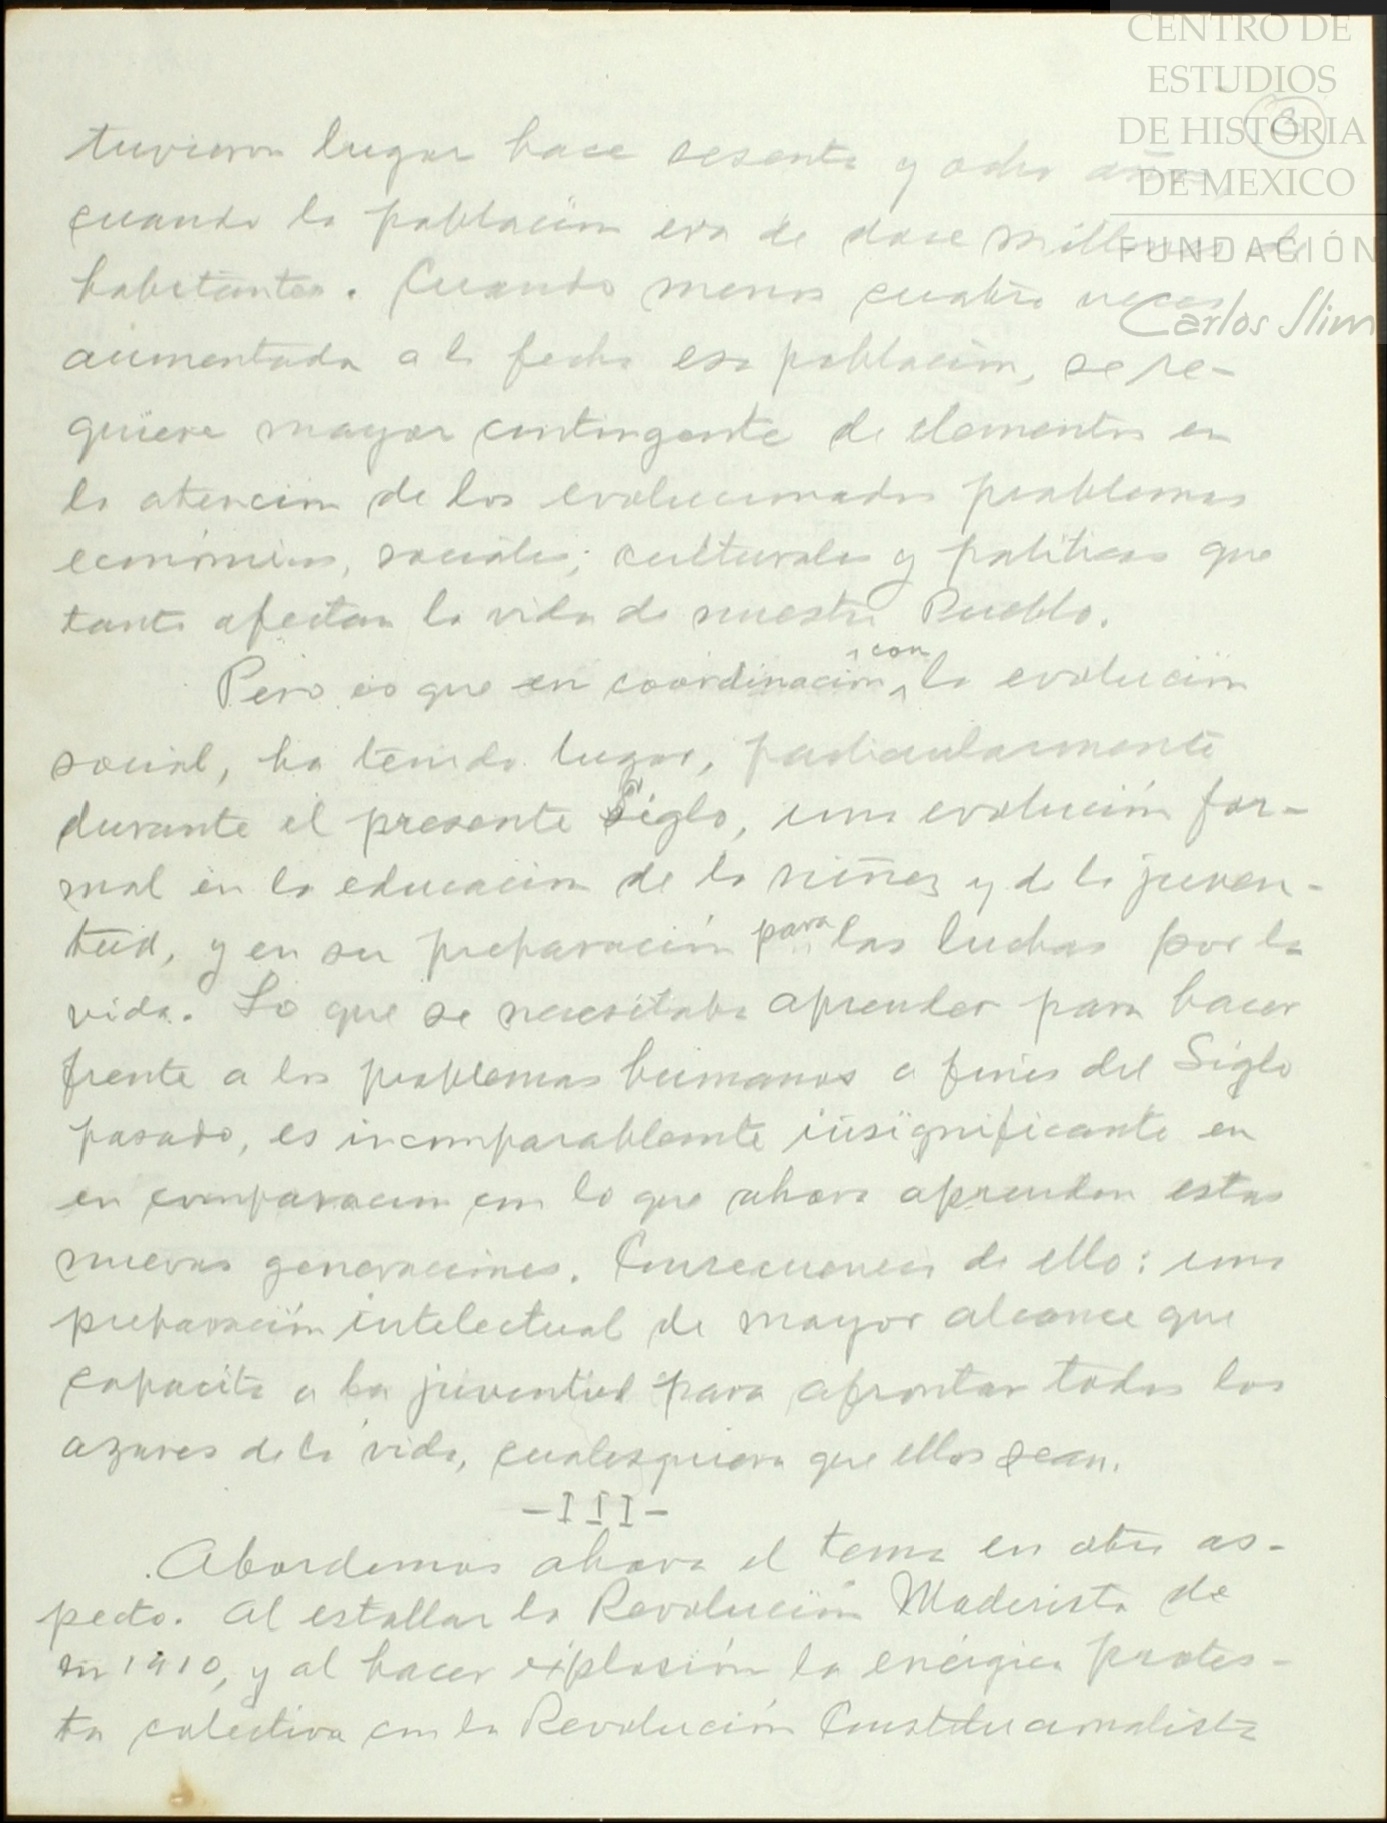 CENTRO DE
ESTUDIOS
DE HISTORIA
DE MEXICO
FUNDACIÓN
Carlos Slim
3
tuvieron lugar hace sesenta y ocho años,
cuando la población era de doce millones de
habitantes. Cuando menos cuatro veces
aumentada a la fecha esa población, se re-
quiere mayor contingente de elementos en
la atención de los evolucionados problemas
económicos, sociales, culturales y políticos que
tanto afectan la vida de nuestro Pueblo.
Pero es que en coordinación con la evolución
social, ha tenido lugar, particularmente
durante el presente Siglo, una evolución for-
mal en la educación de la niñez y de la juven-
tud, y en su preparación para las luchas por la
vida. Lo que se necesitaba aprender para hacer
frente a los problemas humanos a fines del Siglo
pasado, es incomparablemte insignificante en
en comparacion con lo que ahora aprenden estas
nuevas generaciones. Consecuencia de ello: una
preparación intelectual de mayor alcance que
capacita a la juventud para afrontar todos los
azares de la vida, cualesquiera que ellos sean.
-III-
Abordemos ahora el tema en otro as-
pecto. Al estallar la Revolución Maderista de
en 1910, y al hacer explosión la enérgica protes-
ta colectiva con la Revolución Constitucionalista